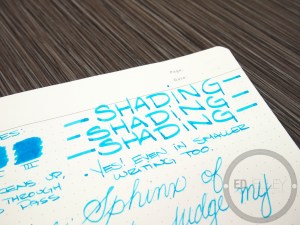 Page
— SHADING —
— SHADING —
— SHADING —
ES:
III
• YES! EVEN IN SMALLER
WRITING TOO.
ENS UP,
THROUGH
PASS
Sphinx of
judge my
ED